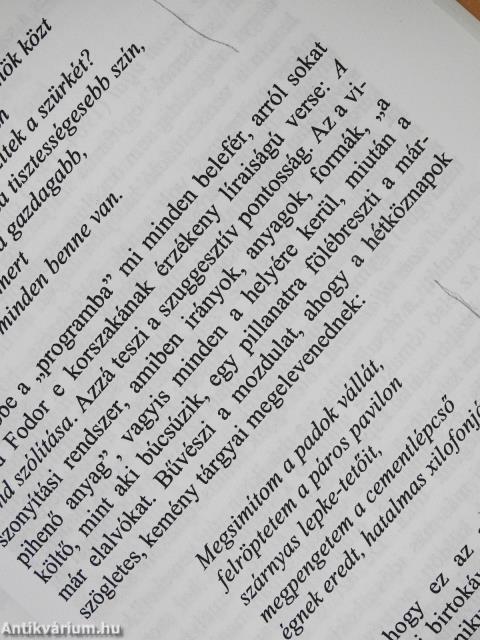 nök közt
ltek a szürkét?
a tisztességesebb szín,
gazdagabb,
mert
minden benne van.
be a „programba” mi minden belefér, arról sokat
Fodor e korszakának érzékeny líraiságú verse: A
híd szólítása. Azzá teszi a szuggesztív pontosság. Az a vi-
szonyítási rendszer, amiben irányok, anyagok, formák, „a
pihenő anyag”, vagyis minden a helyére kerül, miután a
költő, mint aki búcsúzik, egy pillanatra fölébreszti a már-
már elalvókat. Bűvészi a mozdulat, ahogy a hétköznapok
szögletes, kemény tárgyai megelevenednek:
Megsimítom a padok vállát,
felröptetem a páros pavilon
szárnyas lepke-tetőit,
megpengetem a cementlépcső
égnek eredt, hatalmas xilofonjá
hogy ez az a
birtoká
Antikvárium.hu